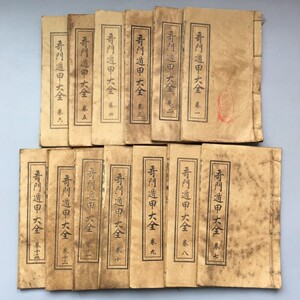 奇門遁甲大全 卷一
奇門遁甲大全 卷二
奇門遁甲大全 卷三
奇門遁甲大全 卷四
奇門遁甲大全 卷五
奇門遁甲大全 卷六
奇門遁甲大全 卷七
奇門遁甲大全 卷八
奇門遁甲大全 卷九
奇門遁甲大全 卷十
奇門遁甲大全
奇門遁甲大全
奇門遁甲大全